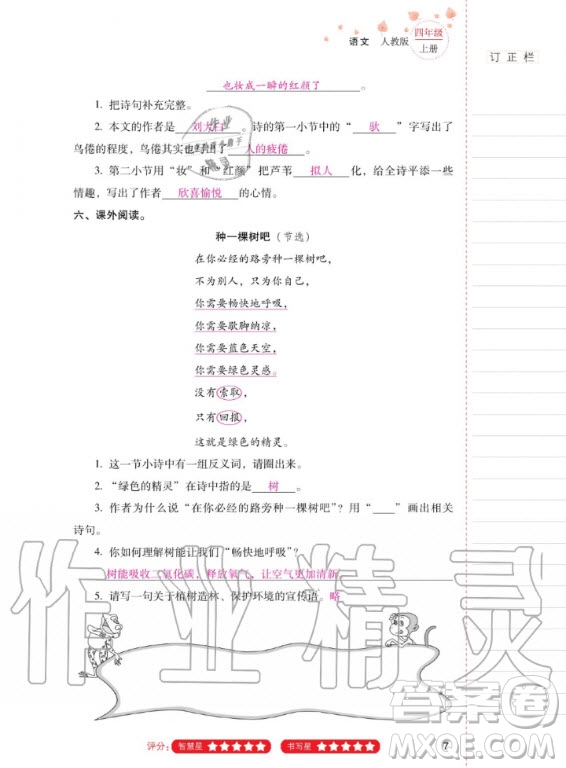 语文 人教版 四年级 上册
订正栏
也妆成一瞬的红颜了。
1. 把诗句补充完整。
2. 本文的作者是 刘大白 。诗的第一小节中的“ 驮 ”字写出了
鸟倦的程度，鸟倦其实也写出了 人的疲倦 。
3. 第二小节用“妆”和“红颜”把芦苇 拟人 化，给全诗平添一些
情趣，写出了作者 欣喜愉悦 的心情。
六、课外阅读。
种一棵树吧（节选）
在你必经的路旁种一棵树吧，
不为别人，只为你自己。
你需要畅快地呼吸，
你需要歇脚纳凉，
你需要蓝色天空，
你需要绿色灵感。
没有索取，
只有回报，
这就是绿色的精灵。
1. 这一节小诗中有一组反义词，请圈出来。
2. “绿色的精灵”在诗中指的是 树 。
3. 作者为什么说“在你必经的路旁种一棵树吧”？用“___”画出相关
诗句。
4. 你如何理解树能让我们“畅快地呼吸”？
树能吸收二氧化碳，释放氧气，让空气更加清新。
5. 请写一句关于植树造林、保护环境的宣传语。略
作业精灵
答案卷
评分： 智慧星 ★★★★★ 书写星 ★★★★★
7